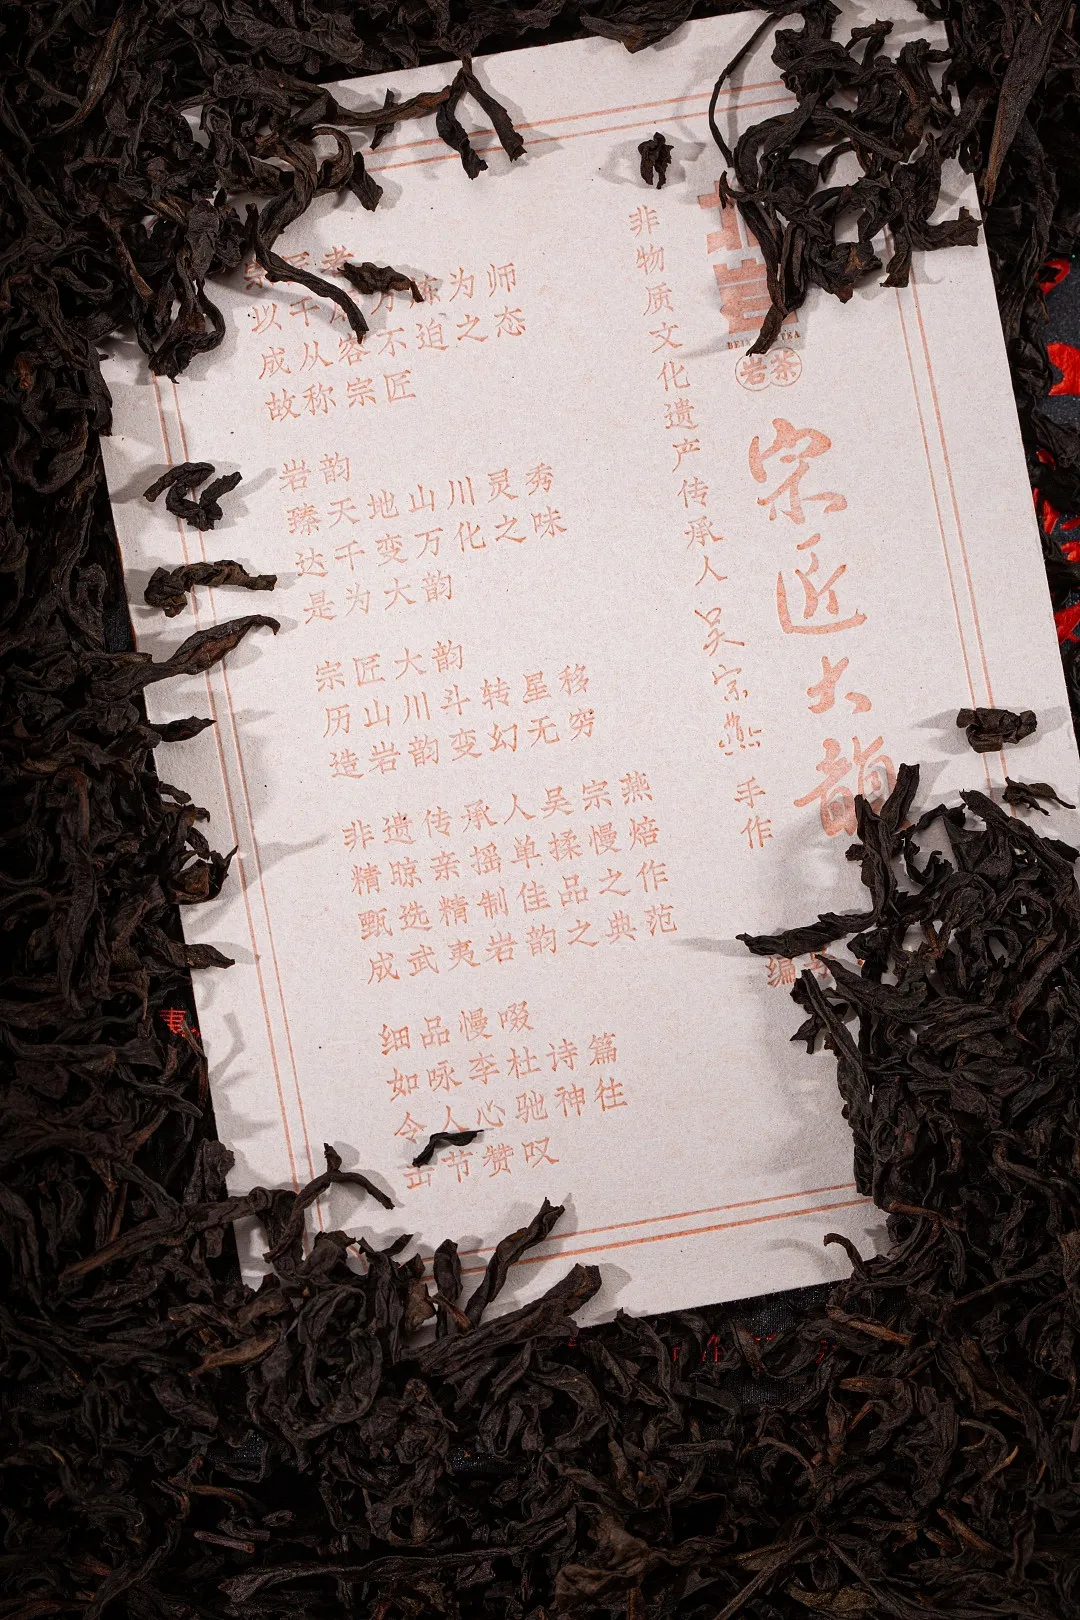 北岩
岩茶
宗匠大韵
非物质文化遗产传承人吴宗燕手作
编号
宗匠者
以千 万炼为师
成从容不迫之态
故称宗匠
岩韵
臻天地山川灵秀
达千变万化之味
是为大韵
宗匠大韵
历山川斗转星移
造岩韵变幻无穷
非遗传承人吴宗燕
精晾亲摇单揉慢焙
甄选精制佳品之作
成武夷岩韵之典范
细品慢啜
如咏李杜诗篇
令人心驰神往
击节赞叹
夷